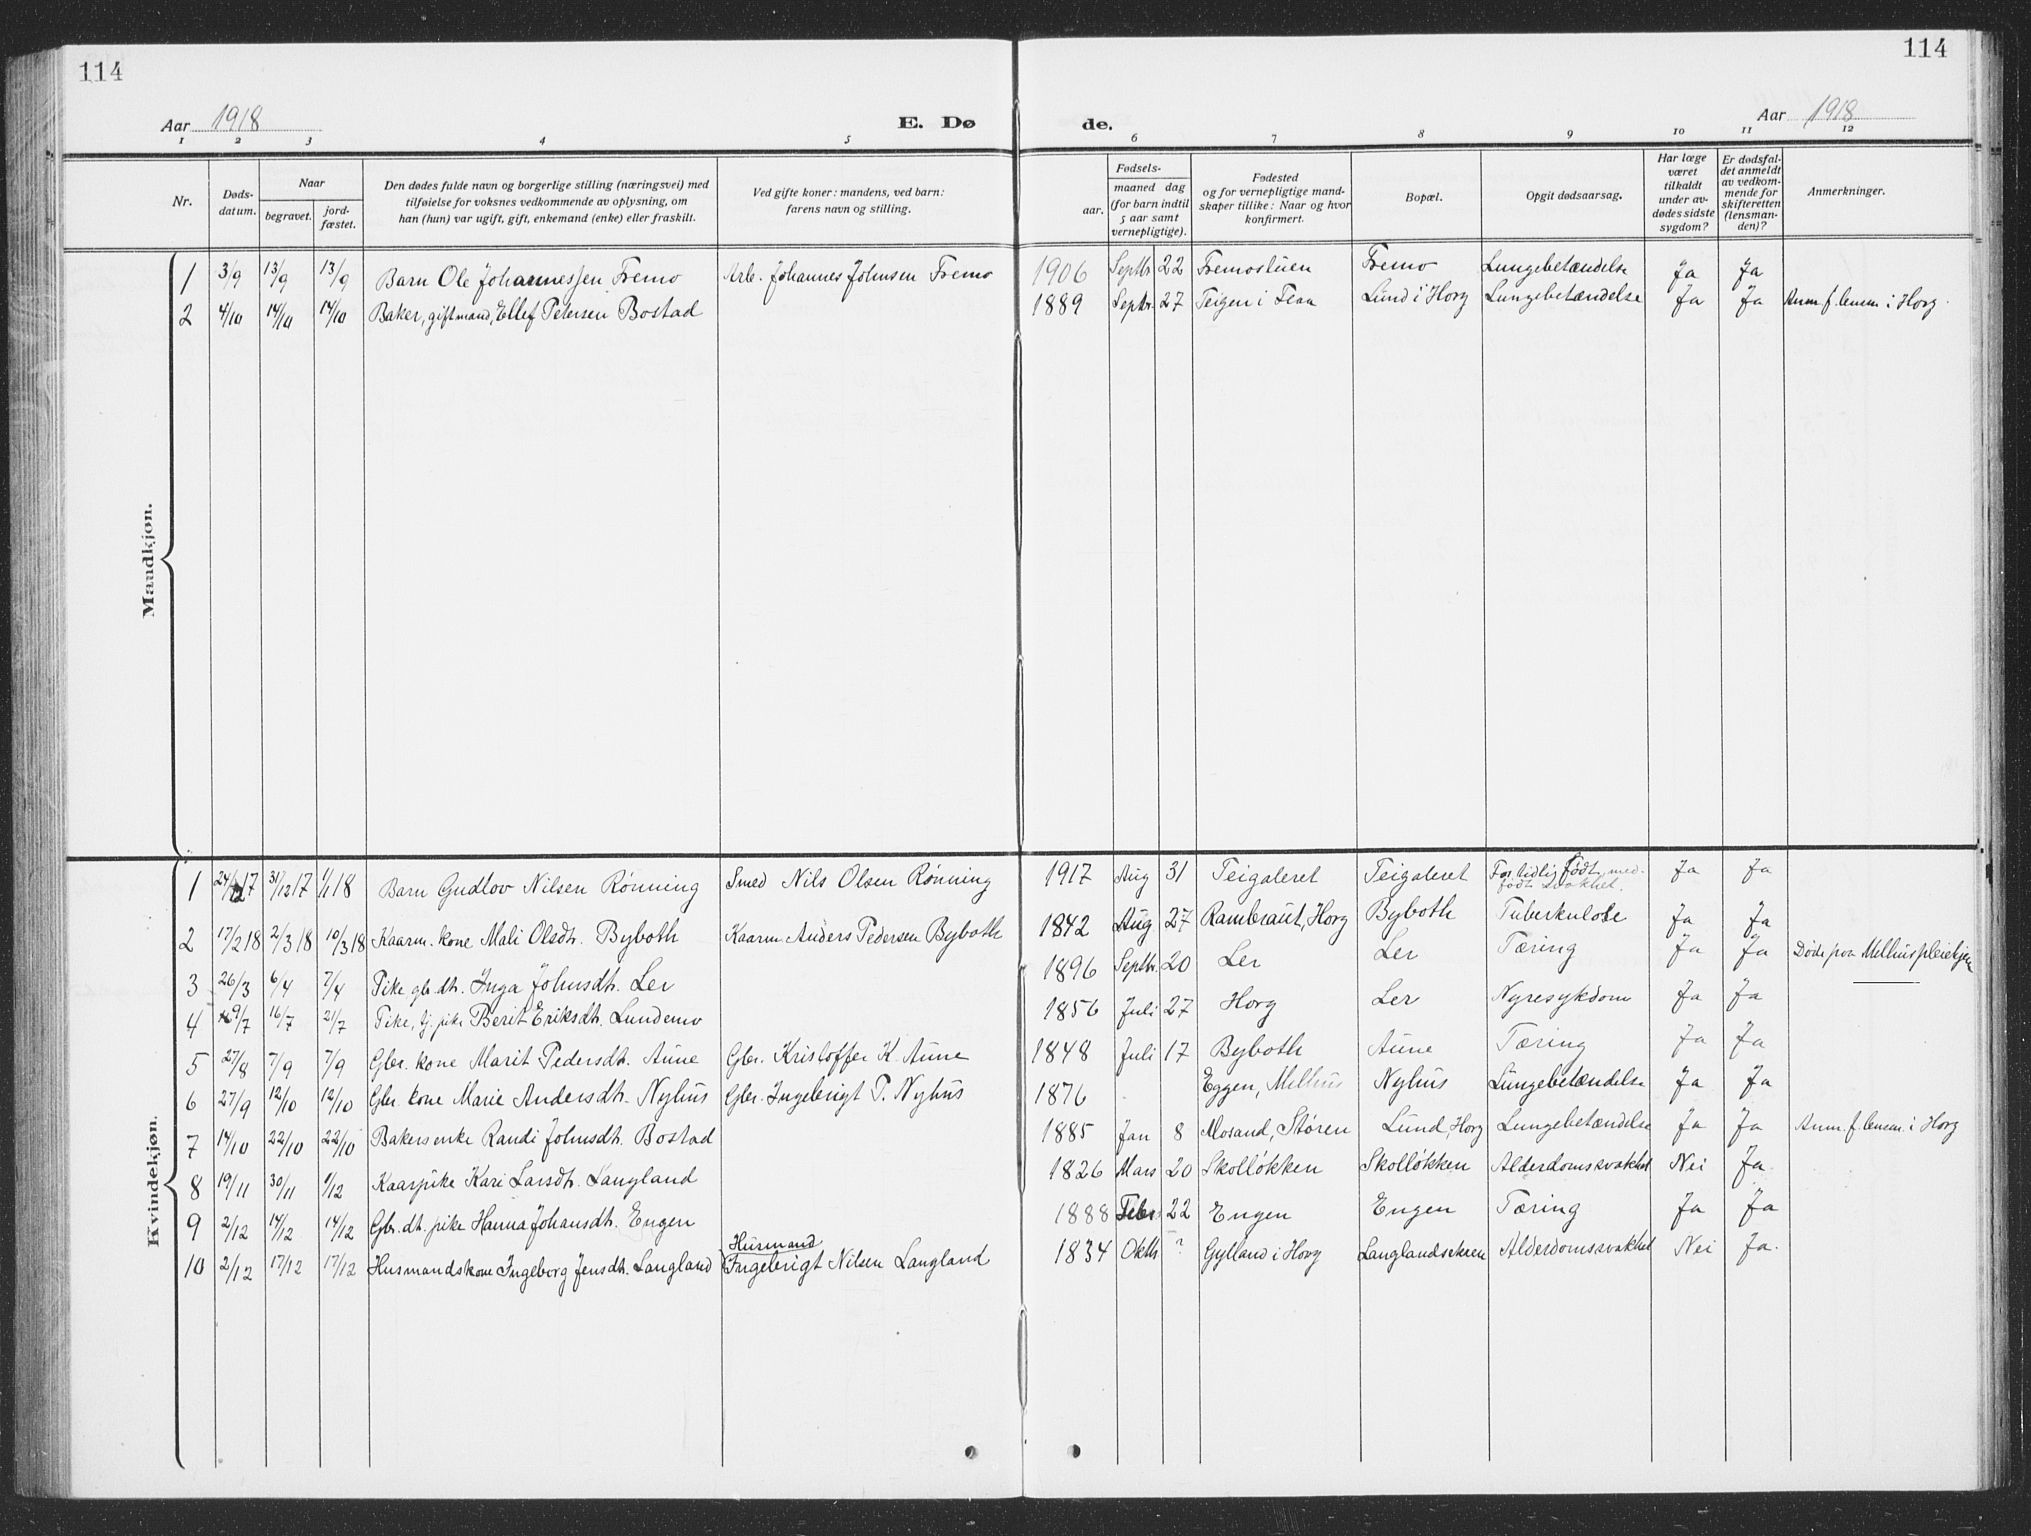 114
114
Aar 1918
E. Dø
de.
Aar 1918
1 2 3 4 5 6 7 8 9 10 11 12
Nr.
Døds-
datum.
Naar
begravet.
jord-
fæstet.
Den dødes fulde navn og borgerlige stilling (næringsvei) med
tilføielse for voksnes vedkommende av oplysning, om
han (hun) var ugift, gift, enkemand (enke) eller fraskilt.
Ved gifte koner: mandens, ved barn:
farens navn og stilling.
Fødsels-
aar.
maaned dag
(for barn indtil
5 aar samt
vernepligtige).
Fødested
og for vernepligtige mand-
skaper tillike: Naar og hvor
konfirmert.
Bopæl.
Opgit dødsaarsag.
Har læge
været
tilkaldt
under av-
dødes sidste
sygdom?
Er dødsfal-
det anmeldt
av vedkom-
mende for
skifteretten
(lensman-
den)?
Anmerkninger.
Mandkjøn.
1 3/9 13/9 13/9 Barn Ole Johannessen Fremo Arb. Johannes Johnsen Fremo 1906 Septbr. 22 Fremostuen Fremo Lungebetændelse Ja Ja
2 4/10 14/10 14/10 Baker, gift mand, Ellef Petersen Bostad 1889 Septbr. 27 Teigen i Flaa Lund i Horg Lungebetændelse Ja Ja Anm. f. lensm. i Horg.
Kvindekjøn.
1 24/12 17 31/12 17 1/1 18 Barn Gudlov Nilsen Rönning Smed Nils Olsen Rönning 1917 Aug 31 Teigaleret Teigaleret For tidlig født, med-
født svakhet. Ja Ja
2 17/2 18 2/3 18 10/3 18 Kaarm. kone Mali Olsdtr. Byboth Kaarm. Anders Pedersen Byboth 1842 Aug 27 Rambraut, Horg Byboth Tuberkulose Ja Ja
3 26/3 6/4 7/4 Pike gbr. dtr. Inga Johnsdtr. Ler 1896 Septbr. 20 Ler Ler Tæring Ja Ja Døde paa Melhus pleiehjem
4 9/7 16/7 21/7 Pike, tj. pike Berit Eriksdtr. Lundemo 1856 Juli 27 Horg Ler Nyresykdom Ja Ja
5 27/8 7/9 7/9 Gbr. kone Marit Pedersdtr. Aune Gbr. Kristoffer K. Aune 1848 Juli 17 Byboth Aune Tæring Ja Ja
6 27/9 12/10 12/10 Gbr. kone Marie Andersdtr. Nyhus Gbr. Ingebrigt P. Nyhus 1876 Eggen, Melhus Nyhus Lungebetændelse Ja Ja
7 14/10 22/10 22/10 Bakersenke Randi Johnsdtr. Bostad 1885 Jan 8 Morand, Støren Lund, Horg Lungebetændelse Ja Ja Anm. f. lensm. i Horg
8 19/11 30/11 1/12 Kaarpike Kari Larsdtr. Langland 1826 Mars 20 Skolløkken Skolløkken Alderdomssvakhet Nei Ja
9 2/12 14/12 14/12 Gbr. dt. pike Hanna Johansdtr. Engen 1888 Febr 22 Engen Engen Tæring Ja Ja
10 2/12 17/12 17/12 Husmandskone Ingeborg Jensdtr. Langland Husmand
Ingebrigt Nilsen Langland 1834 Oktb. ? Gylland i Horg Alderdomssvakhet Nei Ja.